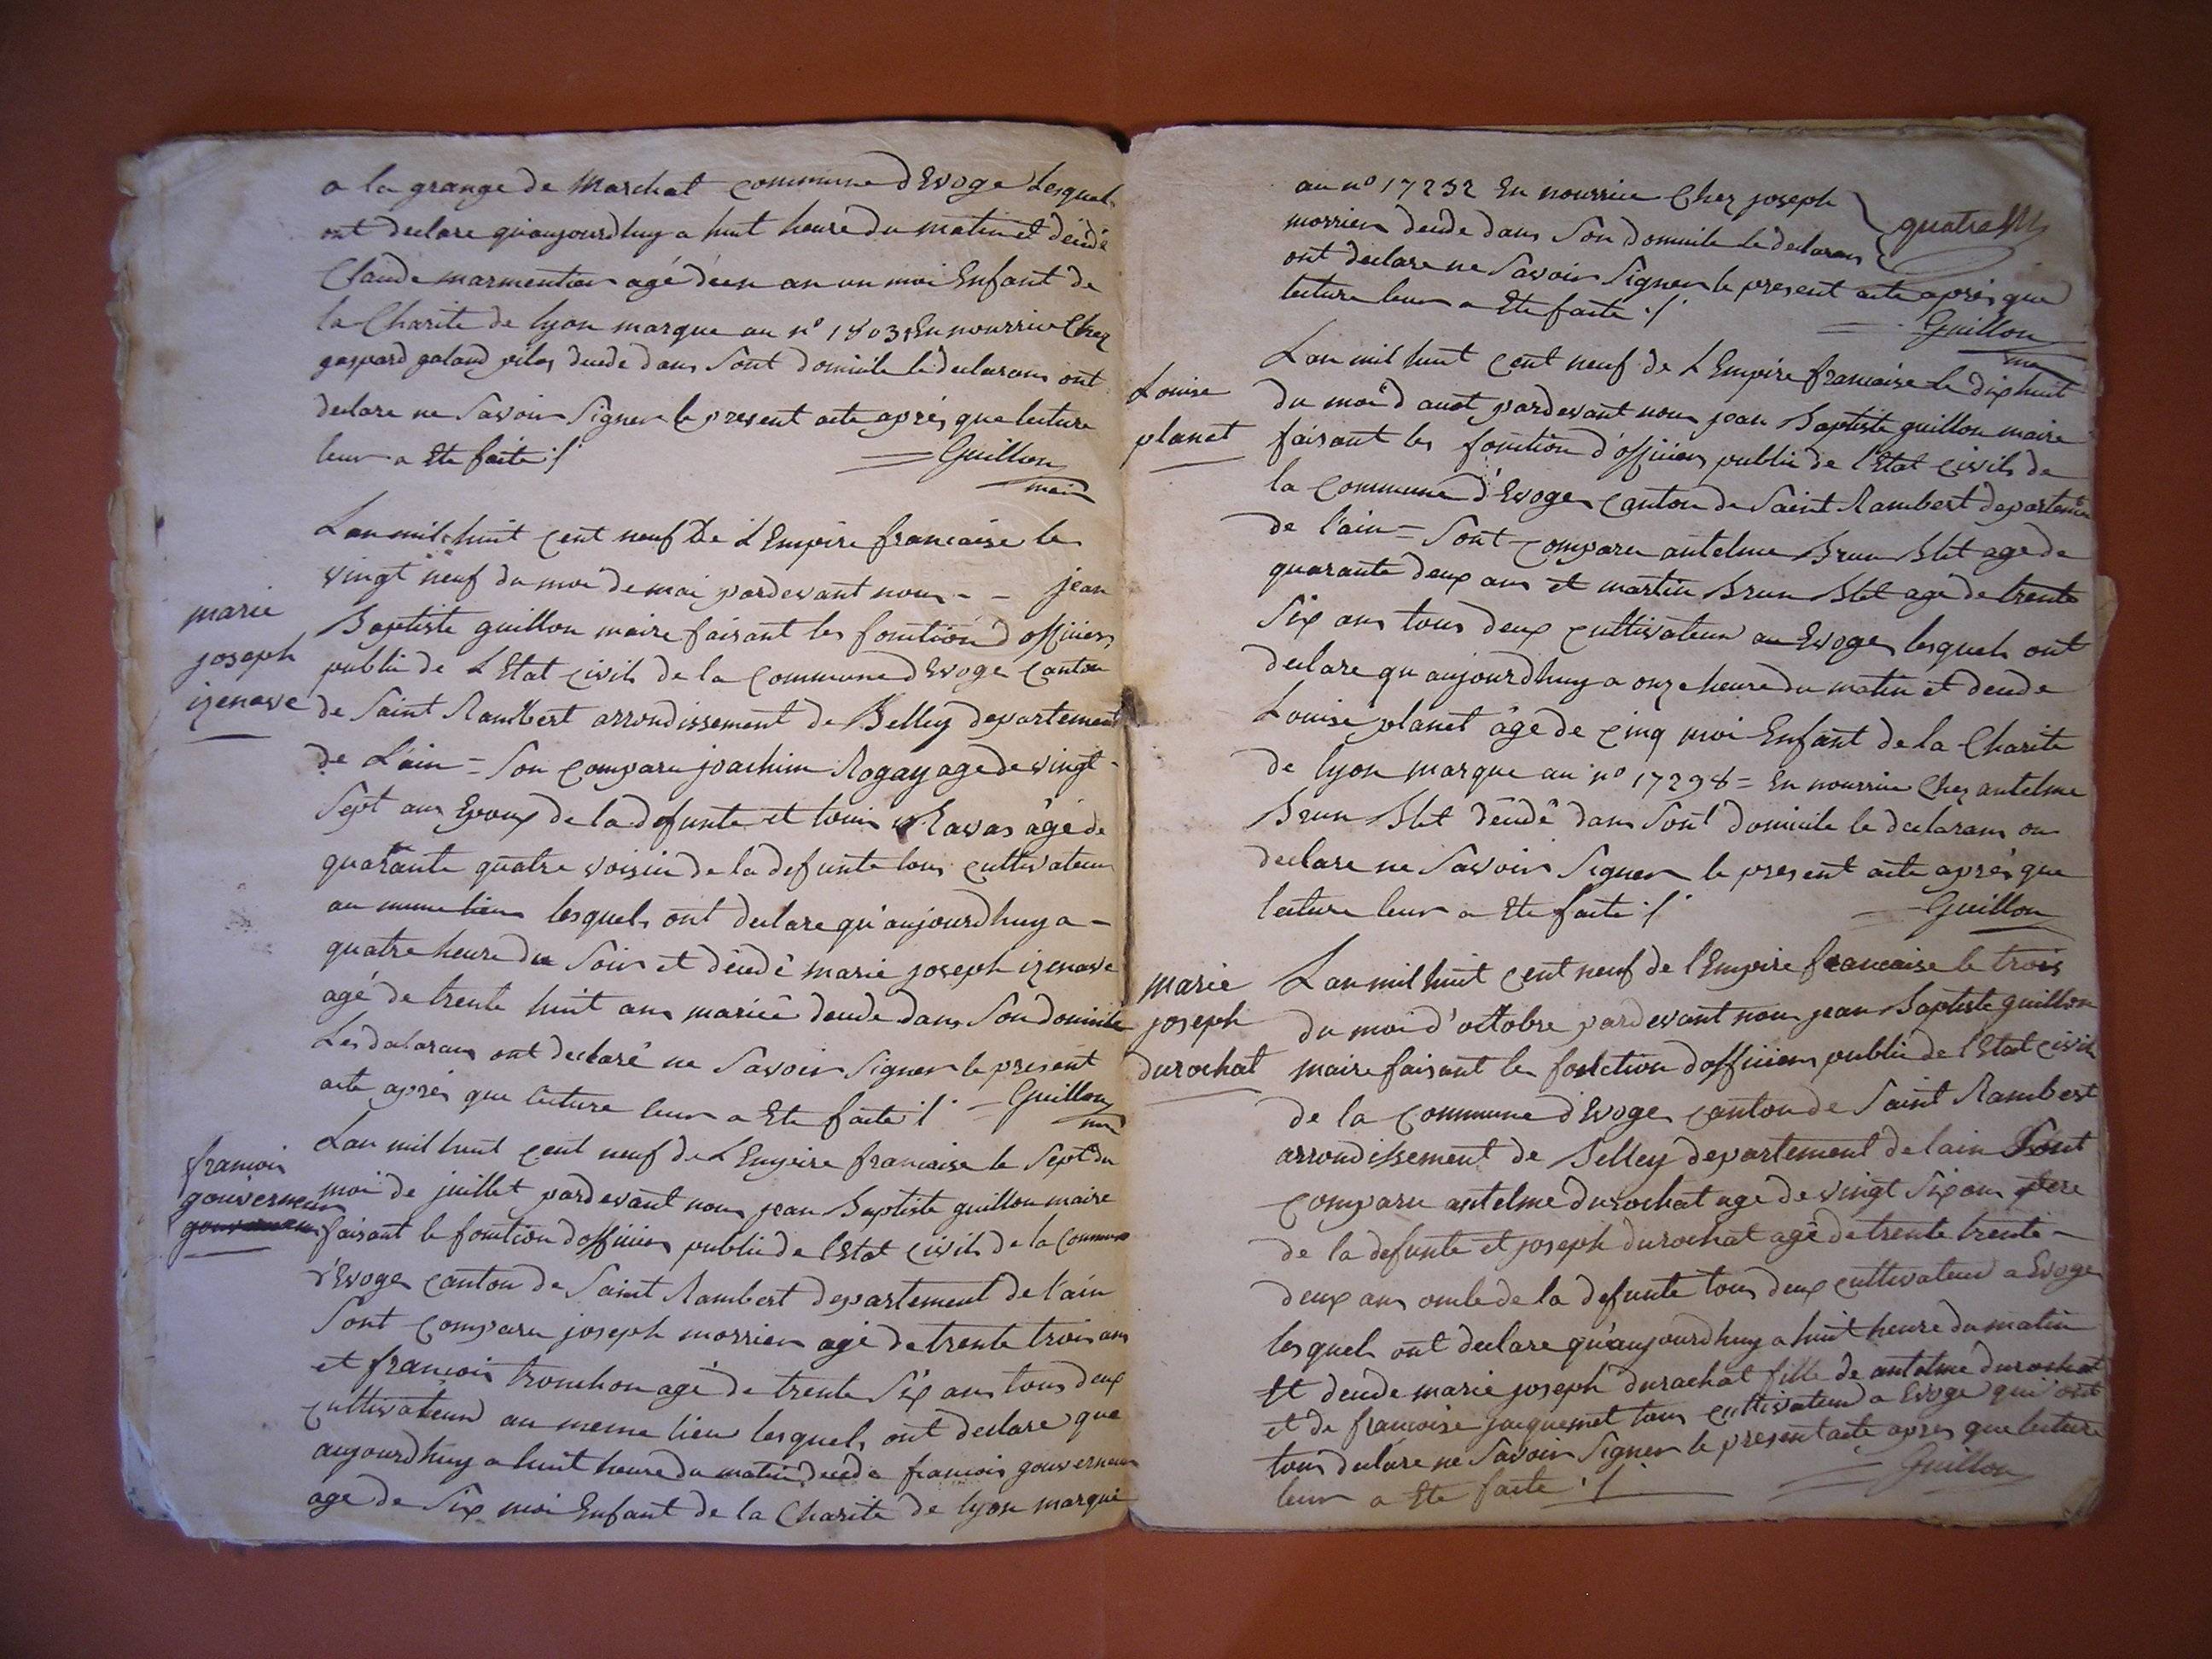 a la grange de Marchat commune d'Evoge Lesquels
ont declare qu'aujourdhuy a huit heure du matin et décédé
Claude marmention agé déen an un moi Enfant de
la Charite de lyon marque au n° 1803 En nourrice Chez
gaspard galand decede dans Sont domicile le declarans ont
declare ne Savoir Signer le present acte aprés que lecture
leur a Ete faite ./.
Guillon
maire
marie
joseph
izenave
Lan mil huit cent neuf De L'Empire francaise le
vingt neuf du moi de mai pardevant nous - - jean
Baptiste guillon maire faisant les fonction d'officier
public de L'Etat civils de la Commune d'Evoge Canton
de Saint Rambert arrondissement de Belley departement
de L'ain = Son comparu joachim Rogay age de vingt-
Sept ans Epoux de la defunte et louis Ravas âgé de
quarante quatre voisin de la defunte tous cultivateur
au meme lieu lesquels ont declare qu'aujourdhuy a -
quatre heure du Soir et décédé marie joseph izenave
agé de trente huit ans mariée decede dans Son domicile
Les declarans ont declaré ne Savoir Signer le present
acte aprés que lecture leur a Ete faite ./. Guillon
francois
gouverneur
Lan mil huit cent neuf de L'Empire francaise le Sept du
moi de juillet pardevant nous jean Baptiste guillon maire
faisant le fonction d'officier public de l'Etat civils de la Commune
d'Evoge canton de Saint Rambert departement de l'ain
Sont comparu joseph morrier agé de trente trois ans
et françois tronchon agé de trente Six ans tous deux
cultivateur au meme lieu lesquels ont declare que
aujourdhuy a huit heure du matin decede francois gouverneur
age de Six moi Enfant de la Charite de lyon marqué
au n° 17232 En nourrice Chez joseph
morrier decede dans Son domicile le declarans
ont declare ne Savoir Signer le present acte aprés que
lecture leur a Ete faite ./.
Guillon
quatre
Louise
planet
Lan mil huit cent neuf de L'Empire francaise Le dix huit
du moi d'auot pardevant nous jean Baptiste guillon maire
faisant les fonction d'officier public de l'Etat civils de
la Commune d'Evoge Canton de Saint Rambert departement
de l'ain = Sont comparu antelme Brun Blet age de
quarante deux ans et martin Brun Blet age de trente
Six ans tous deux cultivateur au Evoge lesquels ont
declare qu aujourdhuy a onze heure du matin et decede
Louise planet âge de cinq moi Enfant de la Charite
de lyon marque au n° 17298 = En nourrice Chez antelme
Brun Blet décédé dans Sont domicile le declarans on
declare ne Savoir Signer le present acte aprés que
lecture leur a Ete faite ./.
Guillon
marie
joseph
durochat
Lan mil huit cent neuf de l'Empire francaise le trois
du moi d'octobre pardevant nous jean Baptiste guillon
maire faisant le fonction d'officier public de l'Etat civils
de la Commune d'Evoge canton de Saint Rambert
arrondissement de Belley departement de lain Sont
comparu antelme durochat age de vingt Six ans pere
de la defunte et joseph durochat agé de trente trente -
deux ans oncle de la defunte tous deux cultivateur a Evoge
lesquels ont declare qu'aujourdhuy a huit heure du matin
Et decede marie joseph durachat fille de antelme durochat
et de francoise jacquemet tous cultivateur a Evoge qui ont
tous declare ne Savoir Signer le present acte apres que lecture
leur a Ete faite ./.
Guillon